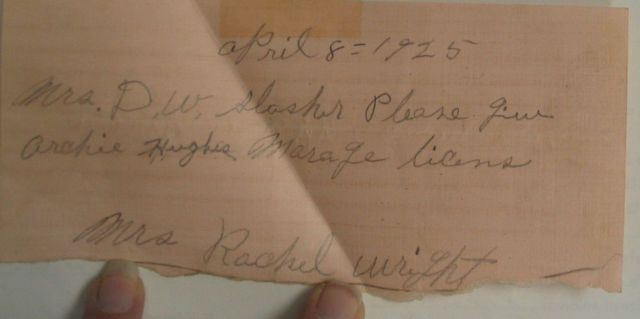 April 8=1925
Mrs. D.W. Slosher Please give
Archie Hughes Marage licens
Mrs Rachel Wright